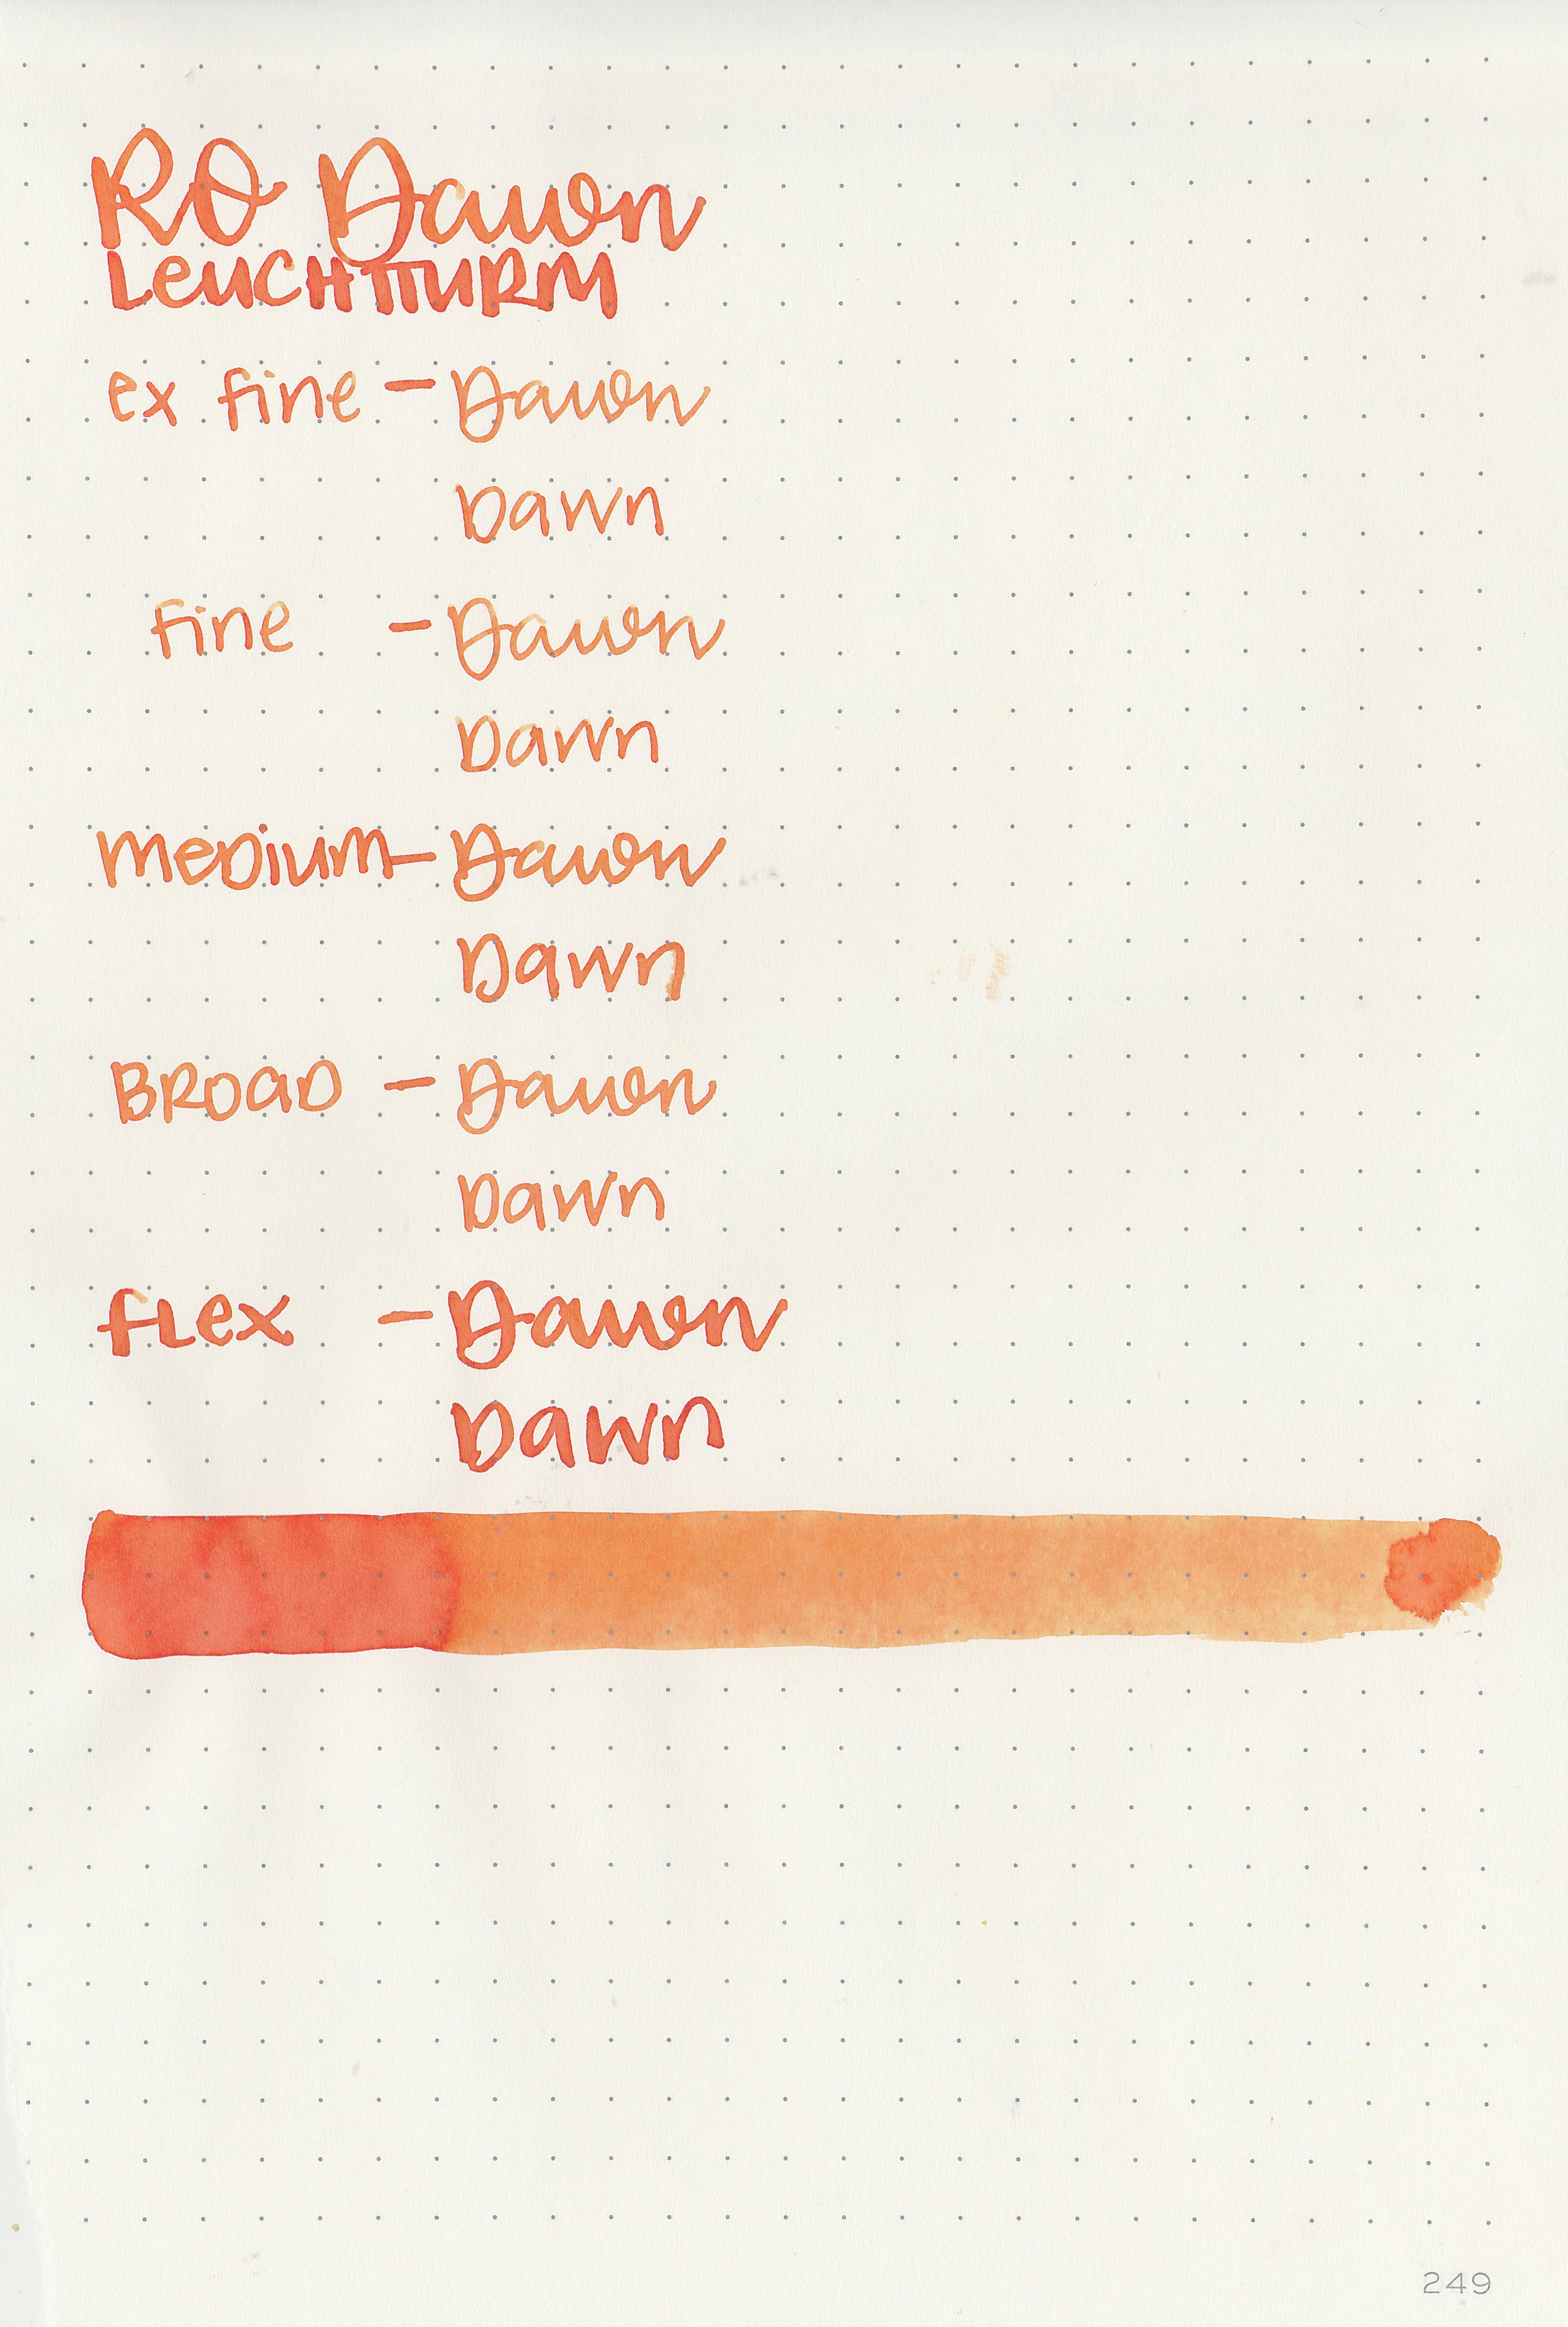 RO Dawn
LEUCHTTURM
ex fine - Dawn
Dawn
fine - Dawn
Dawn
MEDIUM - Dawn
Dawn
BROAD - Dawn
Dawn
FLEX - Dawn
Dawn
249